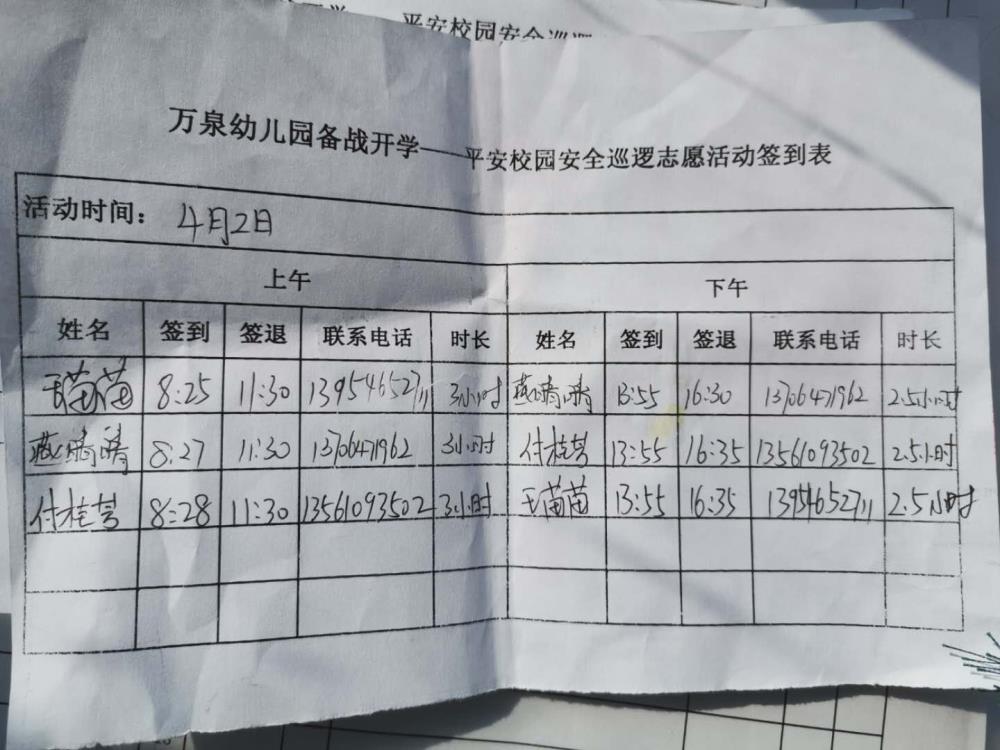 平安校园安全巡逻
万泉幼儿园备战开学——平安校园安全巡逻志愿活动签到表
活动时间： 4月2日
上午 下午
姓名 签到 签退 联系电话 时长 姓名 签到 签退 联系电话 时长
王苗苗 8:25 11:30 13954652711 3小时 燕晴晴 13:55 16:30 13706471962 2.5小时
燕晴晴 8:27 11:30 13706471962 3小时 付桂芳 13:55 16:35 13561093502 2.5小时
付桂芳 8:28 11:30 13561093502 3小时 王苗苗 13:55 16:35 13954652711 2.5小时